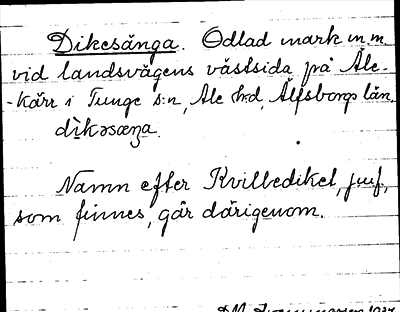 Dikesänga. Odlad mark m.m.
vid landsvägens västsida på Åle-
-kärr i Tunge s:n, Ale h:d, Älfsborgs län.
dìkəsæŋa.
Namn efter Kvilbediket,
som finnes, går därigenom.